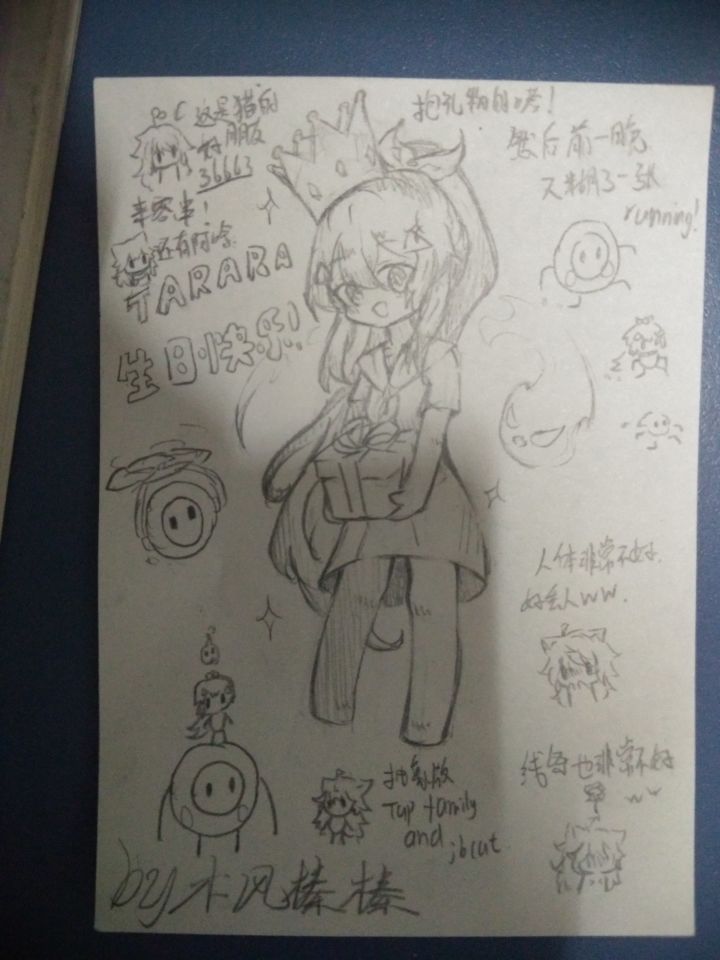 这是猫的
好朋友
36663
还有阿哈
TARARA
生日快乐!
抱礼物的塔!
然后前一晚
又糊了一张
running!
人体非常不好
好丢人ww.
线条也非常不好
ww
抽象版
Tap family
and
jbcut.
by木风榛榛